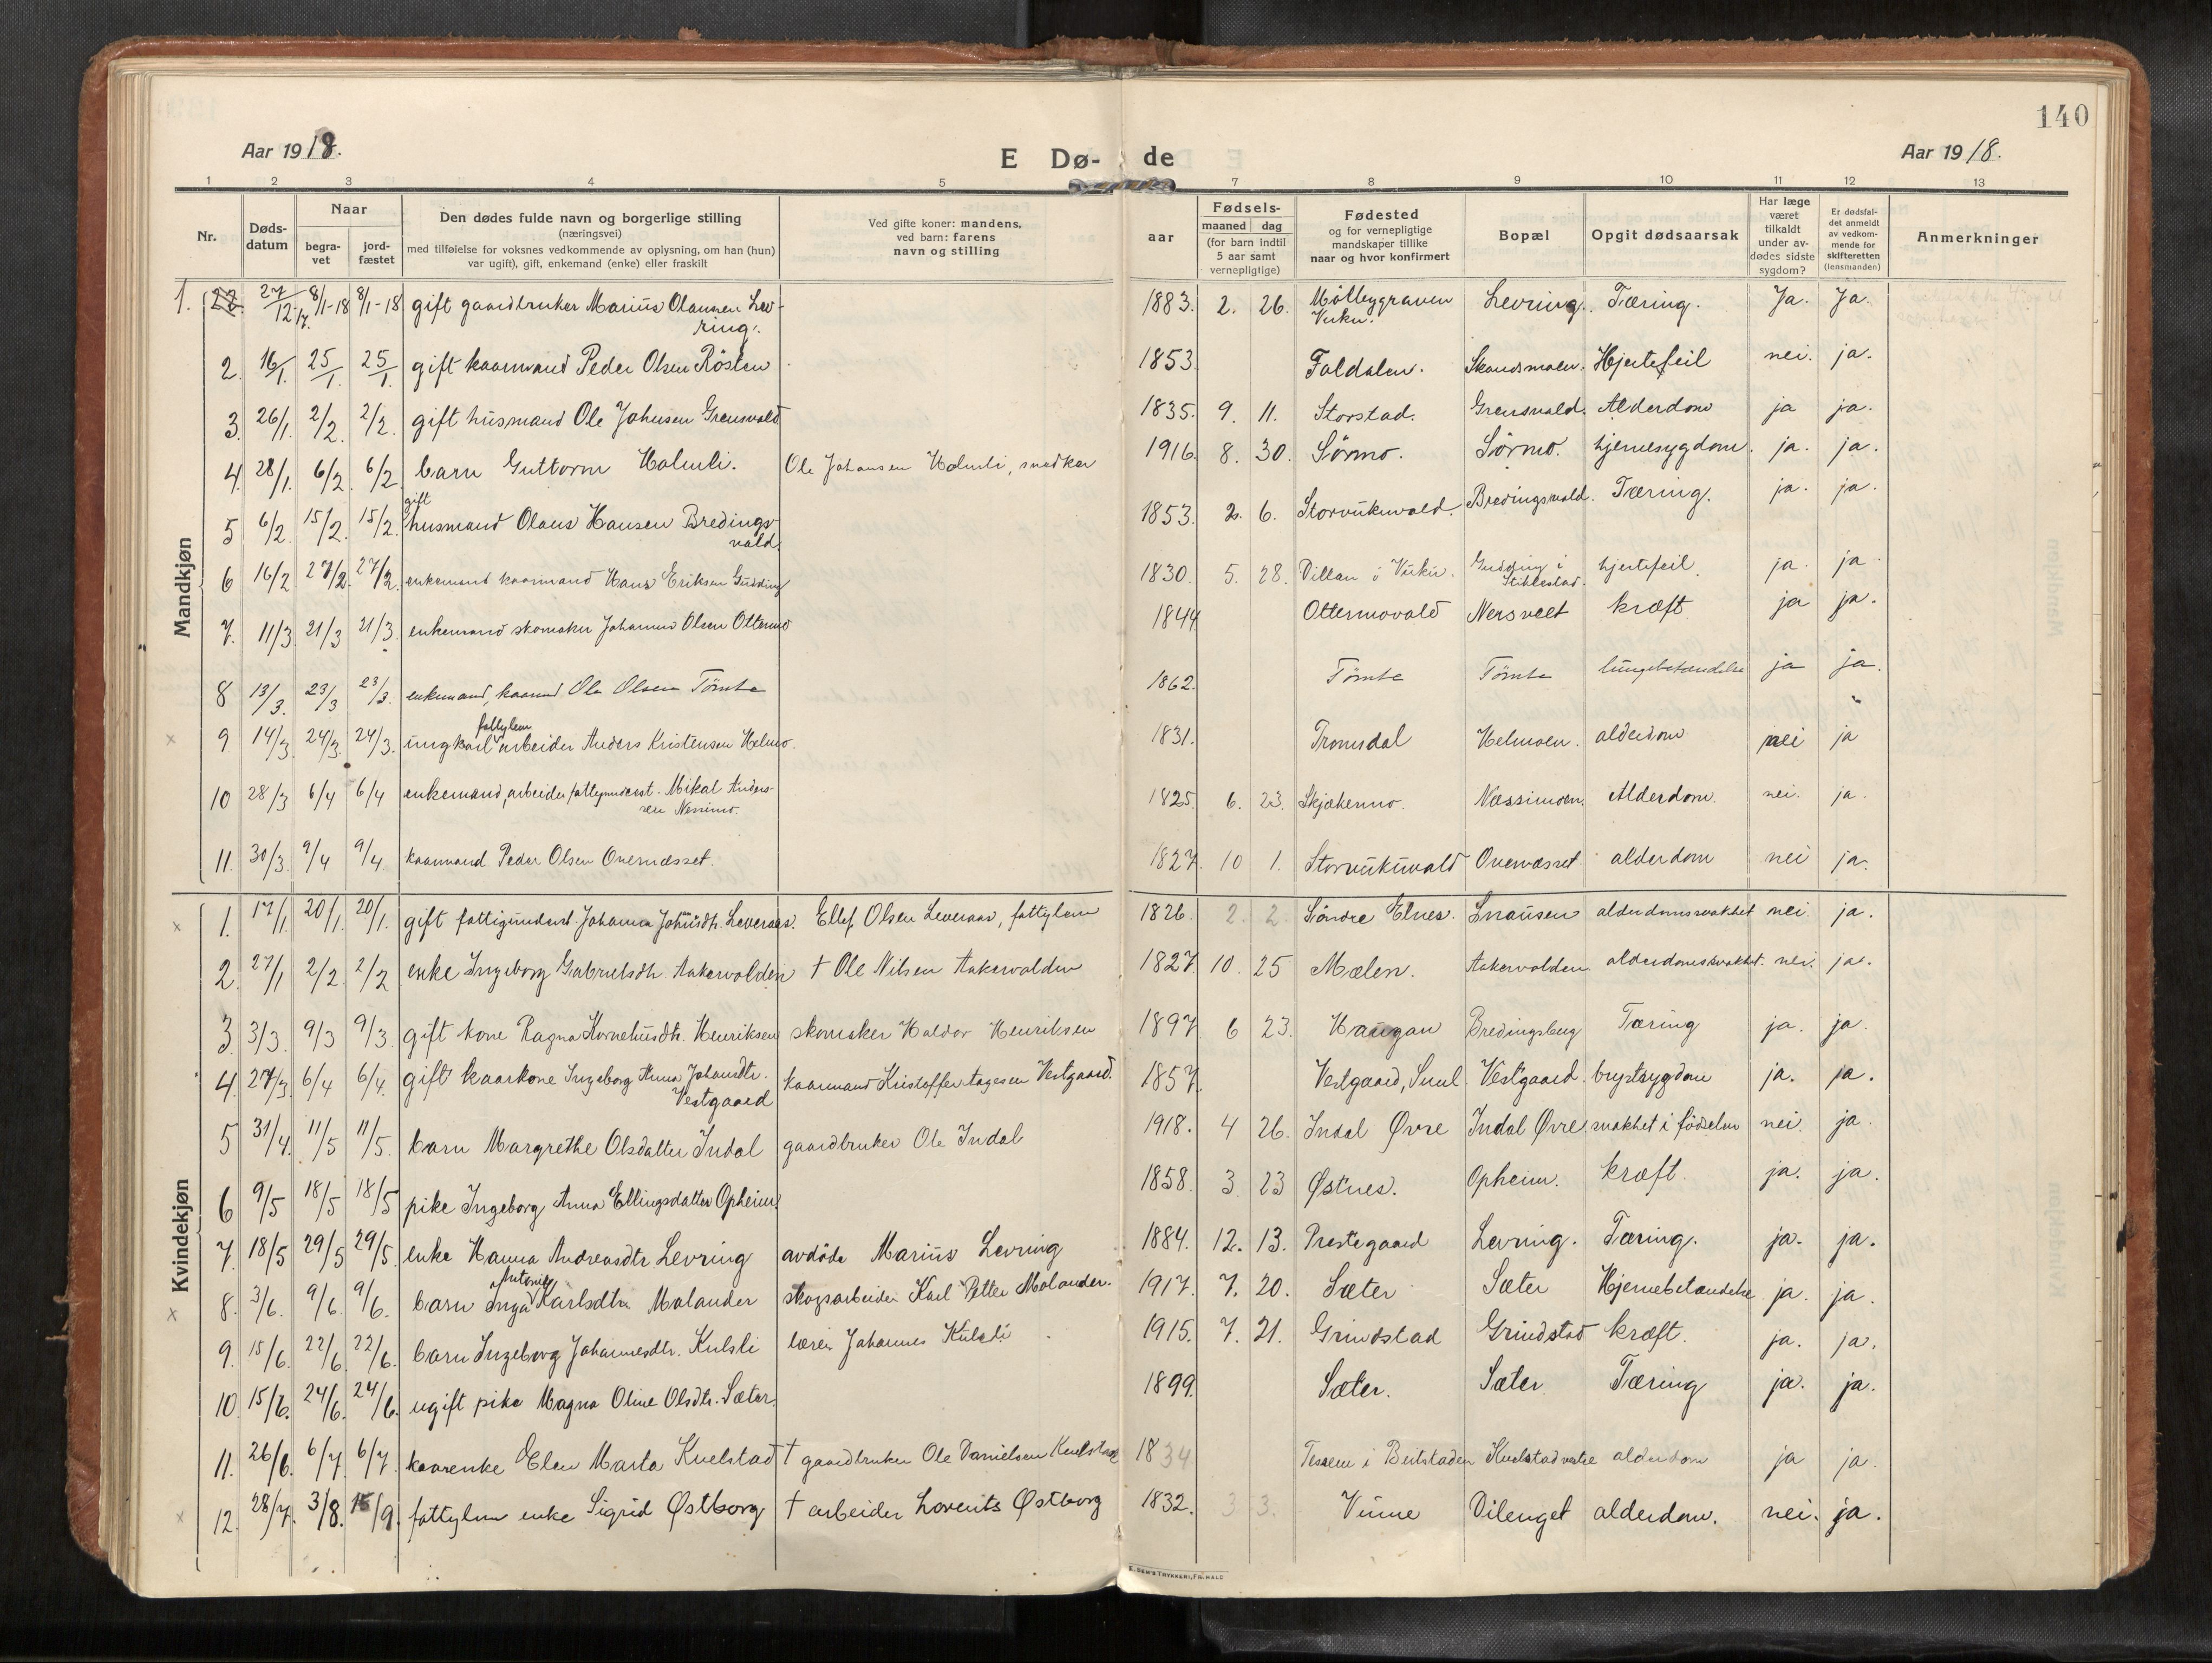 140
Aar 1918.
E Dø- de
Aar 1918.
1 2 3 4 5 7 8 9 10 11 12 13
Nr.
Døds-
datum
Naar
begra-
vet
jord-
fæstet
Den dødes fulde navn og borgerlige stilling
(næringsvei)
med tilføielse for voksnes vedkommende av oplysning, om han (hun)
var ugift), gift, enkemand (enke) eller fraskilt
Ved gifte koner: mandens,
ved barn: farens
navn og stilling
Fødsels-
aar
maaned dag
(for barn indtil
5 aar samt
vernepligtige)
Fødested
og for vernepligtige
mandskaper tillike
naar og hvor konfirmert
Bopæl
Opgit dødsaarsak
Har læge
været
tilkaldt
under av-
dødes sidste
sygdom?
Er dødsfal-
det anmeldt
av vedkom-
mende for
skifteretten
(lensmanden)
Anmerkninger
Mandkjøn
1. 27/12.17. 8/1-18 8/1-18 gift gaardbruker Marius Olausen Lev-
ring. 1883. 2. 26. Vuku. Levring. Tæring. Ja. Ja.
2. 16/1. 25/1. 25/1. gift kaarmand Peder Olsen Røsten 1853 Faldalen. Skandsmoen. Hjertefeil nei. ja.
3. 26/1. 2/2. 2/2. gift husmand Ole Johnsen Grensvald 1835. 9. 11. Storstad. Grensvald. Alderdom ja ja.
4. 28/1. 6/2. 6/2 barn Guttorm Holmli. Ole Johansen Holmli, snedker 1916. 8. 30. Sörmo. Sörmo. hjernesygdom. ja. ja.
5 6/2. 15/2. 15/2. gift husmand Olaus Hansen Bredings-
vald. 1853. 2. 6. Storvukuvald. Bredingsvald. Tæring. ja. ja.
6 16/2 27/2. 27/2. enkemand kaarmand Hans Eriksen Gudding 1830. 5. 28. Dillan i Vuku. Gudding i
Stiklestad. hjertefeil. ja. ja
7. 11/3. 21/3 21/3. enkemand skomaker Johannes Olsen Ottermo 1844 Ottermovald Nersveet kræft ja ja.
8 13/3. 23/3 23/3. enkemand, kaarmd Ole Olsen Tömte 1862. Tömte Tömte lungebetændelse ja ja.
x 9 14/3. 24/3. 24/3. ungkarl fattiglem arbeider Anders Kristensen Helmo. 1831. Tromsdal Helmoen. alderdom nei ja
10 28/3 6/4 6/4 enkemand, arbeider fattigunderst. Mikal Anders-
sen Nessimo. 1825. 6. 23. Næssimoen. Alderdom. nei. ja.
11. 30/3. 9/4 9/4. kaarmand Peder Olsen Overnæsset. 1827. 10 1. Storvukuvald Overnæsset alderdom nei ja.
Kvindekjøn
x 1. 17/1. 20/1. 20/1. gift fattigunderst. Johanna Leveraas. Ellef Olsen Leveraas, fattiglem 1826. 2. 2 Söndre Elnes. Snausen alderdomssvakhet nei ja.
2. 27/1 2/2. 2/2 enke Ingeborg Gabrielsdtr. Aakervolden † Ole Nilsen Aakervolden 1827. 10. 25 Mælen. Aakervolden. alderdomssvakhet. nei. ja.
3. 3/3. 9/3 9/3. gift kone Ragna Korneliusdtr. Henriksen skomaker Haldor Henriksen 1897 6 23. Haugan Bredingsberg Tæring ja. ja.
4. 27/3. 6/4 6/4. gift kaarkone Ingeborg Anna Johansdtr.
Vestgaard kaarmand Kristoffer Aagesen Vestgaard. 1857. Vestgaard, Suul. Vestgaard. brystsygdom ja. ja.
5 31/4. 11/5 11/5. barn Margrethe Olsdatter Indal gaardbruker Ole Indal 1918. 4 26. Indal Øvre Indal Øvre svakhet i födselen nei. ja
6 9/5 18/5 18/5 pike Ingeborg Anna Ellingsdatter Opheim. 1858. 3. 23 Østnes. Opheim. kræft. ja. ja.
7. 18/5 29/5 29/5. enke Hanna Andreasdtr Levring avdöde Marius Levring 1884. 12. 13. Prestegaard Levring. Tæring. ja. ja.
x 8. 3/6. 9/6. 9/6. barn Inga Antonie Karlsdtr. Molander skogsarbeider Karl Petter Molander. 1917. 7. 20. Sæter Sæter Hjernebetændelse ja. ja.
9. 15/6. 22/6. 22/6. barn Ingeborg Johannesdtr. Kulsli lærer Johannes Kulsli 1915. 7. 21. Grindstad Grindstad kræft. ja. ja.
10. 15/6. 24/6. 24/6. ugift pike Magna Oline Olsdtr. Sæter. 1899. Sæter. Sæter. Tæring ja. ja.
11. 26/6. 6/7. 6/7. kaarenke Elen Marta Kvelstad † gaardbruker Ole Danielsen Kvelstad 1834 Tessem i Beitstaden Kvelstad vestre alderdom ja ja.
x 12. 28/7. 3/8. 15/9. fattiglem enke Sigrid Østborg † arbeider Lorents Østborg 1832. 3 3. Vinne Vilenget alderdom. nei. ja.
E. SEM'S TRYKKERI, FR.HALD